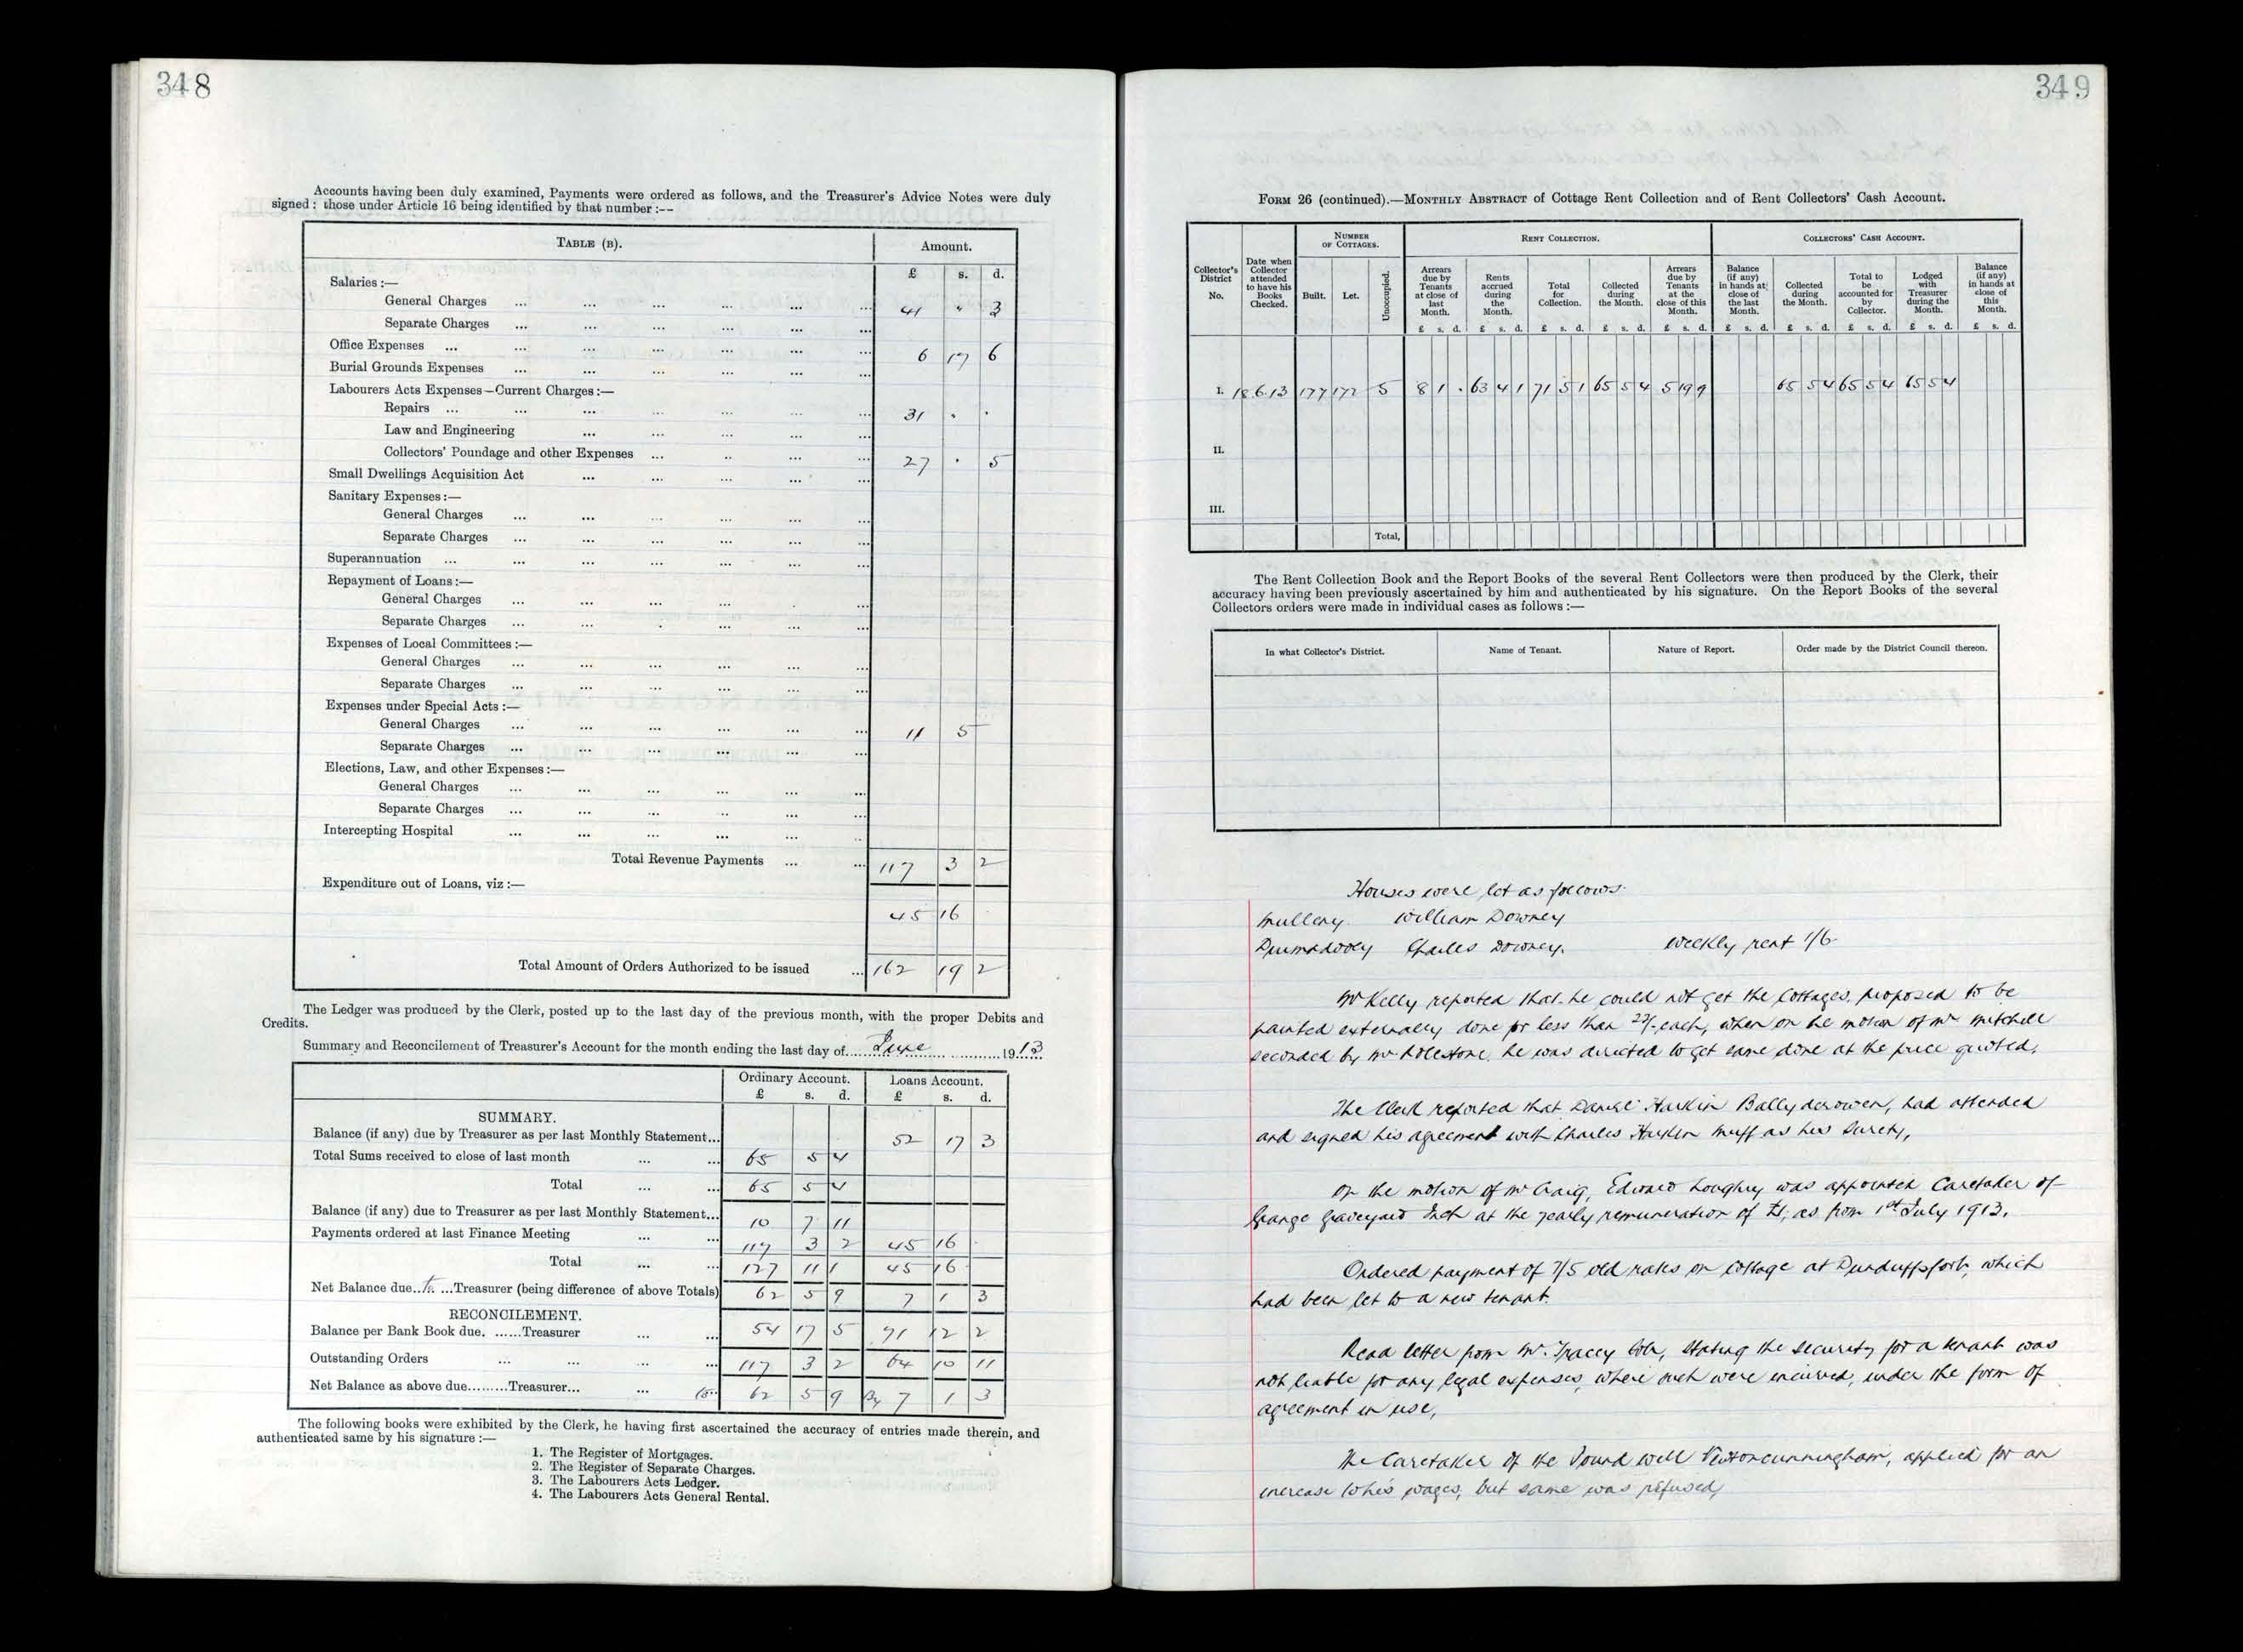 348
Accounts having been duly examined, Payments were ordered as follows, and the Treasurer's Advice Notes were duly
signed: those under Article 16 being identified by that number :--
TABLE (B). Amount.
£ s. d.
Salaries :—
General Charges ... 41 " 3
Separate Charges ...
Office Expenses ... 6 17 6
Burial Grounds Expenses ...
Labourers Acts Expenses—Current Charges :—
Repairs ... 31 . .
Law and Engineering ...
Collectors' Poundage and other Expenses ... 27 . 5
Small Dwellings Acquisition Act ...
Sanitary Expenses :—
General Charges ...
Separate Charges ...
Superannuation ...
Repayment of Loans :—
General Charges ...
Separate Charges ...
Expenses of Local Committees :—
General Charges ...
Separate Charges ...
Expenses under Special Acts :—
General Charges ... 11 5
Separate Charges ...
Elections, Law, and other Expenses :—
General Charges ...
Separate Charges ...
Intercepting Hospital ...
Total Revenue Payments ... 117 3 2
Expenditure out of Loans, viz :—
45 16
Total Amount of Orders Authorized to be issued ... 162 19 2
The Ledger was produced by the Clerk, posted up to the last day of the previous month, with the proper Debits and
Credits.
Summary and Reconcilement of Treasurer's Account for the month ending the last day of June 1913
Ordinary Account. Loans Account.
£ s. d. £ s. d.
SUMMARY.
Balance (if any) due by Treasurer as per last Monthly Statement... 52 17 3
Total Sums received to close of last month ... 65 5 4
Total ... 65 5 4
Balance (if any) due to Treasurer as per last Monthly Statement... 10 7 11
Payments ordered at last Finance Meeting ... 117 3 2 45 16 .
Total ... 127 11 1 45 16
Net Balance due..to...Treasurer (being difference of above Totals) 62 5 9 7 1 3
RECONCILEMENT.
Balance per Bank Book due.......Treasurer ... 54 17 5 71 12 2
Outstanding Orders ... 117 3 2 64 10 11
Net Balance as above due.........Treasurer... 62 5 9 By 7 1 3
The following books were exhibited by the Clerk, he having first ascertained the accuracy of entries made therein, and
authenticated same by his signature :—
1. The Register of Mortgages.
2. The Register of Separate Charges.
3. The Labourers Acts Ledger.
4. The Labourers Acts General Rental.
349
FORM 26 (continued).—MONTHLY ABSTRACT of Cottage Rent Collection and of Rent Collectors' Cash Account.
Collector's District No.
Date when Collector attended to have his Books Checked.
NUMBER OF COTTAGES.
Built. Let. Unoccupied.
RENT COLLECTION.
Arrears due by Tenants at close of last Month. £ s. d.
Rents accrued during the Month. £ s. d.
Total for Collection. £ s. d.
Collected during the Month. £ s. d.
Arrears due by Tenants at the close of this Month. £ s. d.
COLLECTORS' CASH ACCOUNT.
Balance (if any) in hands at close of the last Month. £ s. d.
Collected during the Month. £ s. d.
Total to be accounted for by Collector. £ s. d.
Lodged with Treasurer during the Month. £ s. d.
Balance (if any) in hands at close of this Month. £ s. d.
I. 18.6.13 177 172 5 8 1 . 63 4 1 71 5 1 65 5 4 5 19 9 65 5 4 65 5 4 65 5 4
II.
III.
Total,
The Rent Collection Book and the Report Books of the several Rent Collectors were then produced by the Clerk, their
accuracy having been previously ascertained by him and authenticated by his signature. On the Report Books of the several
Collectors orders were made in individual cases as follows :—
In what Collector's District. Name of Tenant. Nature of Report. Order made by the District Council thereon.
Houses were let as follows.
Mulleny. William Downey
Charles Downey. Weekly rent 1/6
Mr Kelly reported that he could not get the Cottages, proposed to be
painted externally done for less than 22/- each, when on the motion of Mr Mitchell
seconded by Mr he was directed to get same done at the price quoted.
The Clerk reported that Daniel Harkin Ballyderowen, had attended
and signed his agreement with Charles Harkin Muff as his Surety,
On the motion of Mr Craig, Edward Loughrey was appointed Caretaker of
Grange Graveyard Inch at the yearly remuneration of £1, as from 1st July 1913.
Ordered payment of 7/5 old rates on Cottage at Drumduffsfort, which
had been let to a new tenant.
Read letter from Mr. Tracey Solr, stating the security for a tenant was
not liable for any legal expenses, where such were incurred, under the form of
agreement in use,
The Caretaker of the Pound well Newtoncunningham, applied for an
increase to his wages, but same was refused,